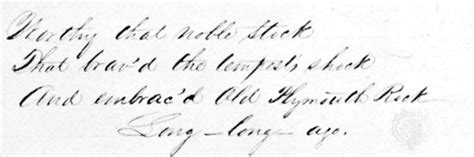 Worthy that noble stock
That brav'd the tempest's shock
And embrac'd Old Plymouth Rock
Long – long – ago.